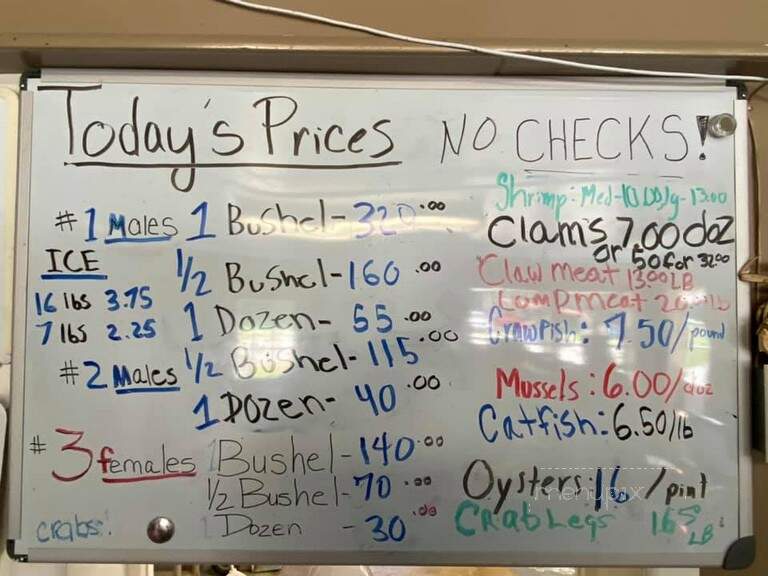 Today's Prices NO CHECKS!
#1 Males 1 Bushel-320.00
1/2 Bushel-160.00
1 Dozen-55.00
ICE
16 lbs 3.75
7 lbs 2.25
#2 Males 1/2 Bushel-115.00
1 Dozen-40.00
#3 females 1 Bushel-140.00
1/2 Bushel-70.00
Dozen - 30.00
crabs!
Shrimp: Med-
13.00
Clams 7.00 doz
or 50 for 32.00
Claw meat 13.00 LB
Lump meat
Crawfish: 7.50/pound
Mussels: 6.00/doz
Catfish: 6.50/lb
Oysters: 16/pint
Crab Legs 16.50 LB
menupix